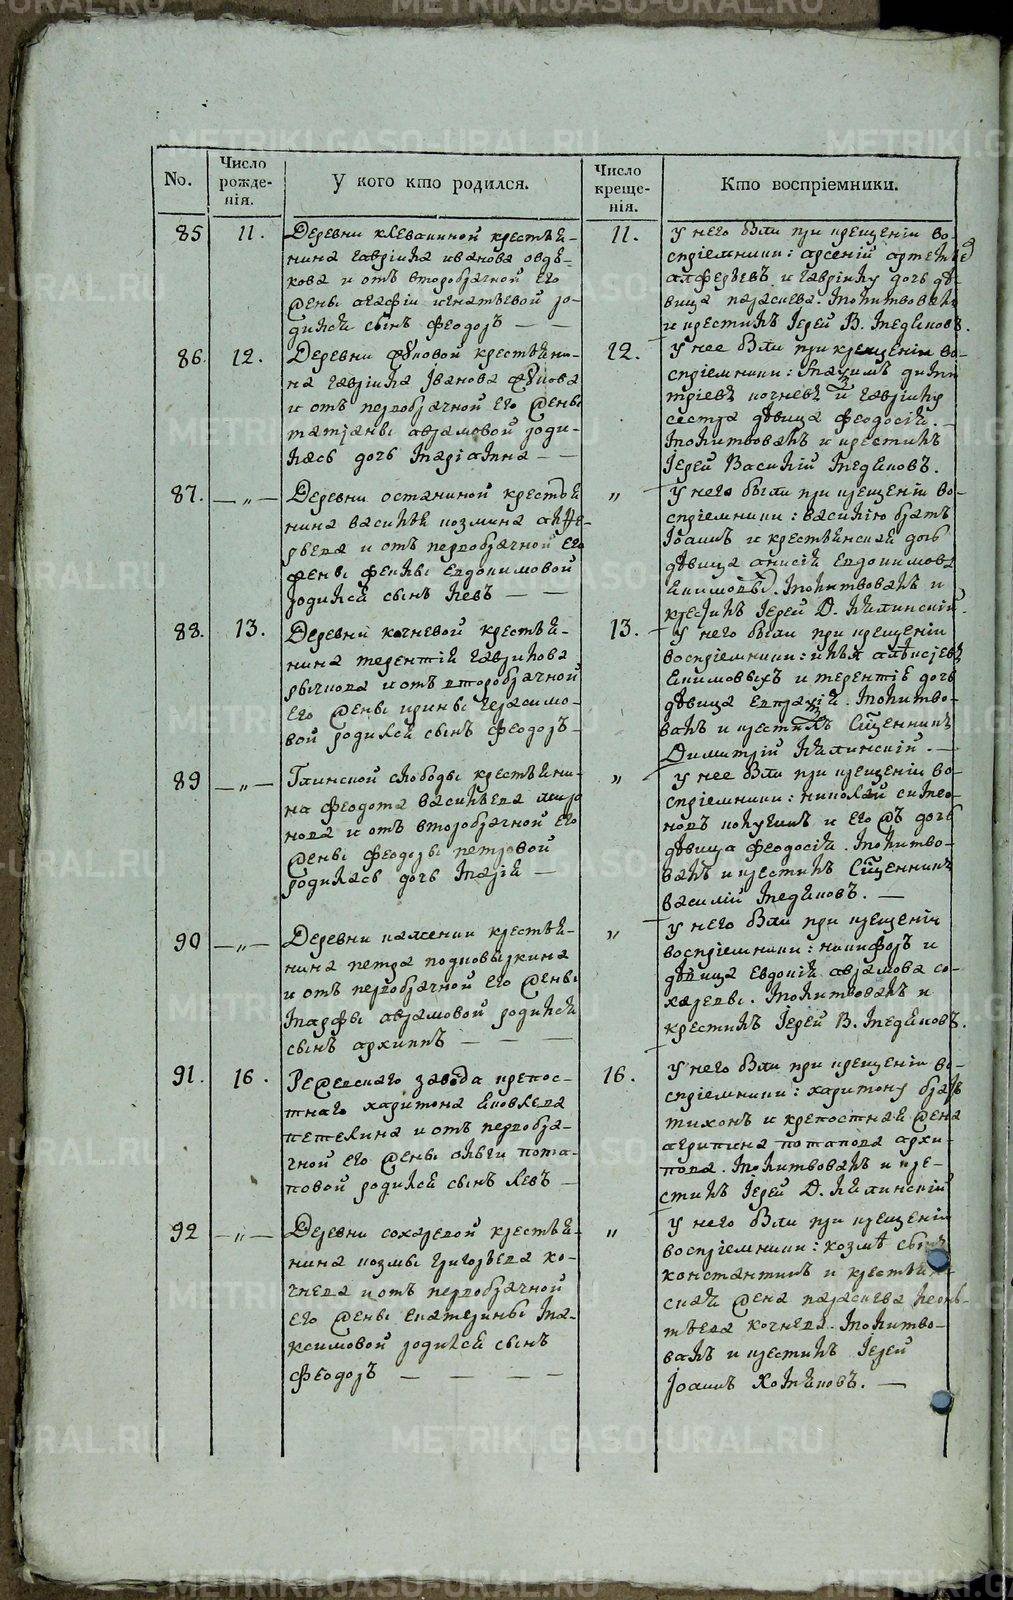 No.
Число рожде-нія.
У кого кто родился.
Число креще-нія.
Кто воспріемники.
85
11.
Деревни клевакиной крестья-
нина гавріила иванова овдѣ-
кова и отъ второбрачной его
жены агафіи игнатьевой ро-
дился сынъ феодоръ — —
11.
У него были при крещеніи во-
спріемники: арсеній артемьев
алферьевъ и гавріилу дочь дѣ-
вица параскева. Молитвовалъ
и крестилъ Іерей В. Медвановъ.
86.
12.
Деревни
крестьяни-
на гавріила Іванова
и отъ первобрачной его жены
татіаны аврамовой роди-
лась дочь Маріамна — —
12.
У нее были при крещеніи во-
спріемники: Максимъ дими
тріевъ кочневъ и гавріилу
сестра дѣвица феодосія. —
Молитвовалъ и крестилъ
Іерей Василій
87.
— „ —
Деревни останиной крестья
нина василья козмина андр-
еева и отъ первобрачной его
жены феклы евдокимовой
родился сынъ левъ — —
„
У него были при крещеніи во-
спріемники: василію братъ
Іоаннъ и крестьянская дочь
дѣвица анисія евдокимова
екимовы. Молитвовалъ и
крестилъ Іерей Д. Калинскій.
88.
13.
Деревни кочневой крестья-
нина терентій гаврилова
рычкова и отъ второбрачной
его жены ирины герасимо-
вой родился сынъ феодоръ —
13.
У него были при крещеніи
воспріемники: илья алексѣевъ
екимовыхъ и терентіѣ дочь
дѣвица евпраксія. Молитво-
валъ и крестилъ Сщенникъ
Димитрій Калинскій. —
89
— „ —
Глинской слободы крестьяни-
на феодота васильева миро
нова и отъ второбрачной его
жены феодоры петровой
родилась дочь Марія —
„
У нее были при крещеніи во-
спріемники: николай симео-
новъ
и его жъ дочь
дѣвица феодосія. Молитво-
валъ и крестилъ Сщенникъ
василій
90
— „ —
Деревни каменки крестья-
нина петра подковыркина
и отъ первобрачной его жены
Марфы аврамовой родился
сынъ архиппъ — — —
„
У него были при крещеніи
воспріемники: никифоръ и
дѣвица Евдокія аврамова со-
харевы. Молитвовалъ и
крестилъ Іерей В.
91.
16.
Режевскаго завода крепос-
тнаго харитона яковлева
петелина и отъ первобра-
чной его жены ольги пота-
повой родился сынъ левъ —
16.
У него были при крещеніи во-
спріемники: харитону братъ
тихонъ и крепостная жена
агрипина потапова архи-
пова. Молитвовалъ и кре-
стилъ Іерей Д. Калинскій
92
— „ —
Деревни сохаревой крестья-
нина козмы григорьева ко-
чнева и отъ первобрачной
его жены екатерины Ма-
ксимовой родился сынъ
феодоръ — — — —
„
У него были при крещеніи
воспріемники: козмѣ сынъ
константинъ и крестьян-
ская жена параскева леонь-
тьева кочнева. Молитво-
валъ и крестилъ Іерей
Іоаннъ Хотяновъ. —
METRIKI.GASO-URAL.RU